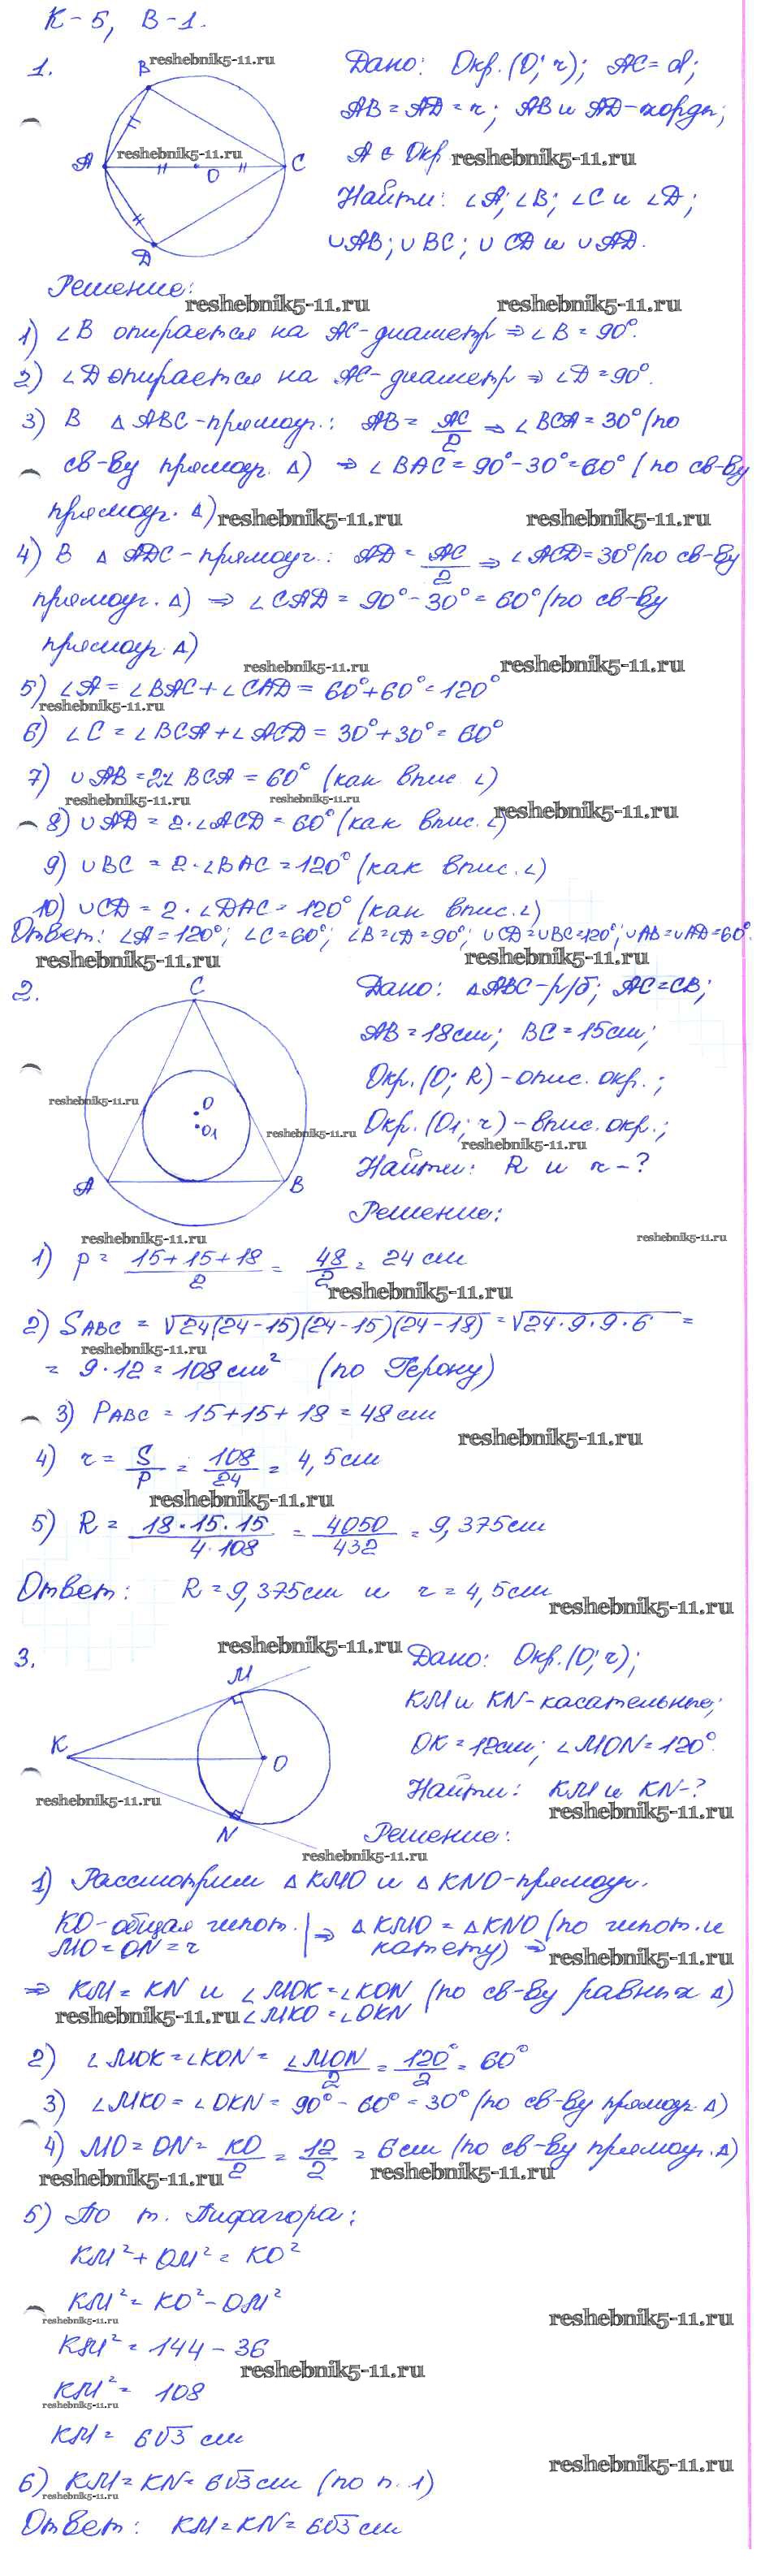 К-5, В-1.
1.
reshebnik5-11.ru
B
A
reshebnik5-11.ru
O
C
D
Дано: Окр.(O; r); AC=d;
AB=AD=r; AB и AD-хорды;
A ∈ Окр reshebnik5-11.ru
Найти: ∠A; ∠B; ∠C и ∠D;
∪AB; ∪BC; ∪CD и ∪AD.
Решение:
reshebnik5-11.ru reshebnik5-11.ru
1) ∠B опирается на AC-диаметр ⇒ ∠B = 90°.
2) ∠D опирается на AC-диаметр ⇒ ∠D = 90°.
3) В △ABC-прямоуг.: AB = AC/2 ⇒ ∠BCA = 30° (по
св-ву прямоуг. △) ⇒ ∠BAC = 90°-30°=60° (по св-ву
прямоуг. △) reshebnik5-11.ru reshebnik5-11.ru
4) В △ADC-прямоуг.: AD = AC/2 ⇒ ∠ACD=30° (по св-ву
прямоуг. △) ⇒ ∠CAD = 90°-30° = 60° (по св-ву
прямоуг. △)
reshebnik5-11.ru reshebnik5-11.ru
5) ∠A = ∠BAC + ∠CAD = 60°+60°=120°
reshebnik5-11.ru
6) ∠C = ∠BCA + ∠ACD = 30°+30°= 60°
7) ∪AB = 2·∠BCA = 60° (как впис. ∠)
reshebnik5-11.ru reshebnik5-11.ru reshebnik5-11.ru
8) ∪AD = 2·∠ACD = 60° (как впис. ∠)
9) ∪BC = 2·∠BAC = 120° (как впис. ∠)
10) ∪CD = 2·∠DAC = 120° (как впис. ∠)
Ответ: ∠A=120°; ∠C=60°; ∠B=∠D=90°; ∪CD=∪BC=120°; ∪AB=∪AD=60°.
reshebnik5-11.ru reshebnik5-11.ru
2.
C
reshebnik5-11.ru
O
O1
reshebnik5-11.ru
A
B
Дано: △ABC-р/б; AC=CB;
AB=18см; BC=15см;
Окр.(O; R)-опис. окр.;
Окр.(O1; r)-впис. окр.;
reshebnik5-11.ru
Найти: R и r-?
Решение:
reshebnik5-11.ru reshebnik5-11.ru
1) p = (15+15+18)/2 = 48/2 = 24 см
reshebnik5-11.ru
2) SABC = √24(24-15)(24-15)(24-18) = √24·9·9·6 =
reshebnik5-11.ru
= 9·12 = 108 см² (по Герону)
3) PABC = 15+15+18 = 48 см
reshebnik5-11.ru
4) r = S/p = 108/24 = 4,5см
reshebnik5-11.ru
5) R = 18·15·15/4·108 = 4050/432 = 9,375см
Ответ: R=9,375см и r=4,5см
reshebnik5-11.ru
3.
reshebnik5-11.ru
M
K
O
reshebnik5-11.ru
N
Дано: Окр.(O; r);
KM и KN-касательные;
OK=12см; ∠MON=120°.
Найти: KM и KN-?
reshebnik5-11.ru
Решение:
reshebnik5-11.ru
1) Рассмотрим △KMO и △KNO-прямоуг.
KO-общая гипот. | ⇒ △KMO = △KNO (по гипот. и
MO=ON=r | катету) ⇒
reshebnik5-11.ru
⇒ KM=KN и ∠MOK=∠KON (по св-ву равных △)
reshebnik5-11.ru ∠MKO=∠OKN
2) ∠MOK=∠KON = ∠MON/2 = 120°/2 = 60°
3) ∠MKO = ∠OKN = 90°-60° = 30° (по св-ву прямоуг. △)
4) MO=ON = KO/2 = 12/2 = 6см (по св-ву прямоуг. △)
reshebnik5-11.ru reshebnik5-11.ru
5) По т. Пифагора:
KM²+OM² = KO²
KM² = KO²-OM²
reshebnik5-11.ru reshebnik5-11.ru
KM² = 144-36
reshebnik5-11.ru
KM² = 108
reshebnik5-11.ru
KM = 6√3 см
reshebnik5-11.ru
6) KM=KN=6√3см (по п.1)
reshebnik5-11.ru
Ответ: KM=KN=6√3см